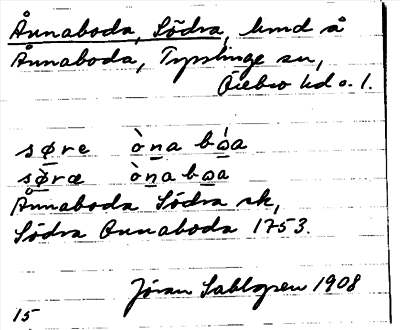 Ånnaboda, Södra, lmd å
Ånnaboda, Tysslinge sn,
Örebro hd o. l.
søre ònabòa
søræ ònabωa
Ånnaboda Södra sk,
Södra Onnaboda 1753.
Jöran Sahlgren 1908
15